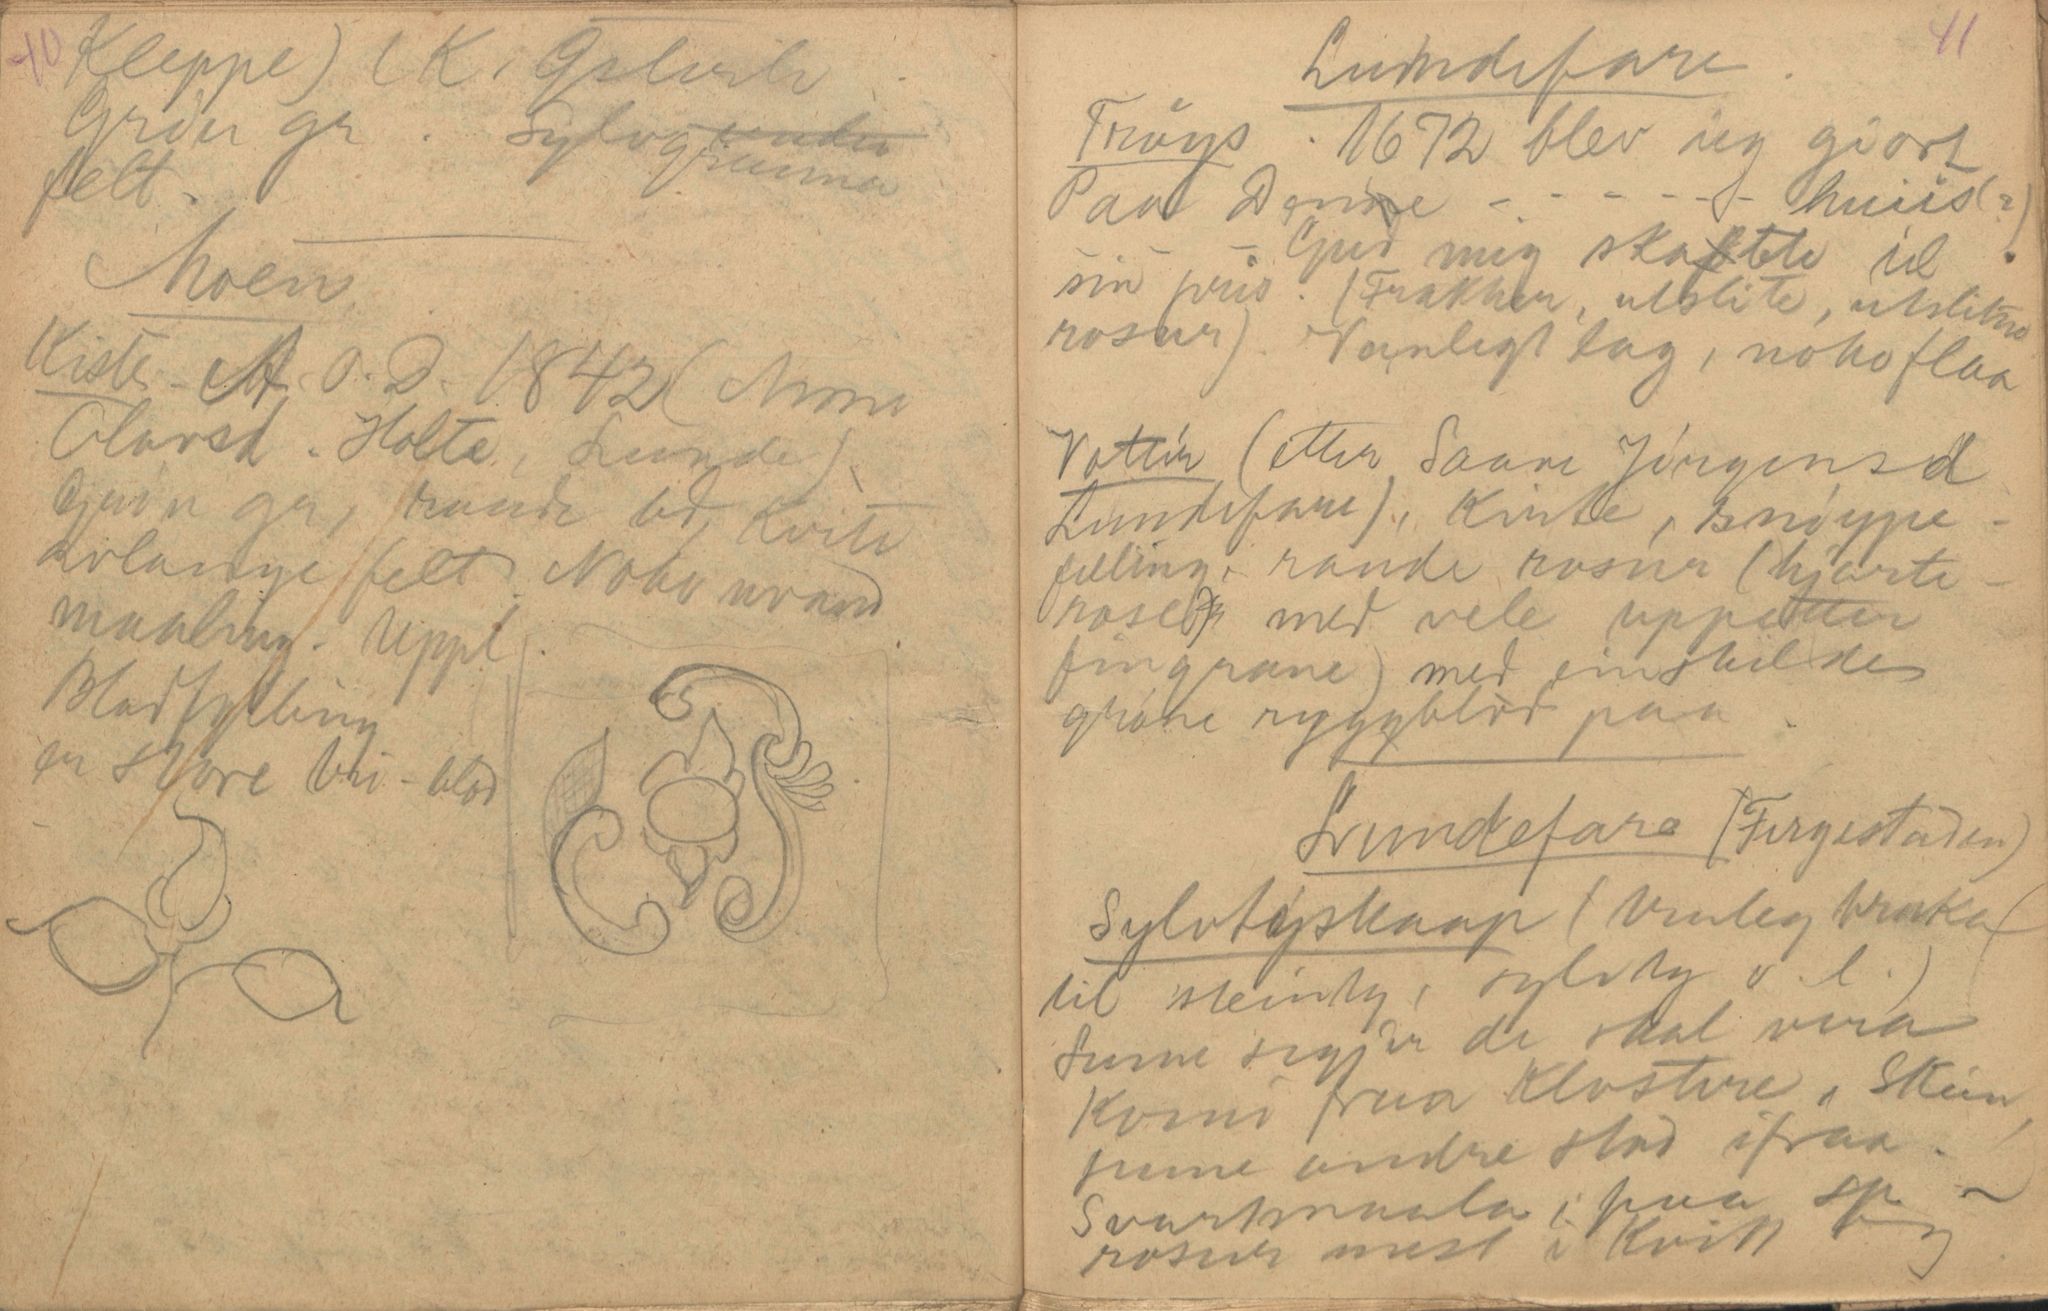 10
Kleppe) (K. Gslvih
Grön gr. Sylvgrunna
felt.
Moen
Kiste A. O. D. 1842 (Anne
Olavsd. Holte, Lunde)
Grön gr, raude bd, kvite
avlange felt. Noko uvand
maaling. Uppl.
Bladfylling
er store tri-blad
11
Lundefare.
Tröys. 1672 blev ieg giort
Paa Denne - - - - - - huus (?)
- - - Gud mig skabte til
sin pris. (Frakker, utslite, utslitne
rosur). Vanlegt lag, noko flaa
Votter (etter Saave Jörgensd
Lundefare), Kvite, snöyppe-
felling, raude rosur (hjarte-
rose med vele uppetter
fingrane) med einskilde
gröne ryggblöd paa.
Lundefare (Fergestaden)
Sylvtöyskaap (truleg bruka
til steinty, sylvty o. l.)
Sume segjer de skal vera
Komi fraa Klostere, Skien,
sume andre stad ifraa.
Svartmaala, paa sp
rosur mest i kvitt og